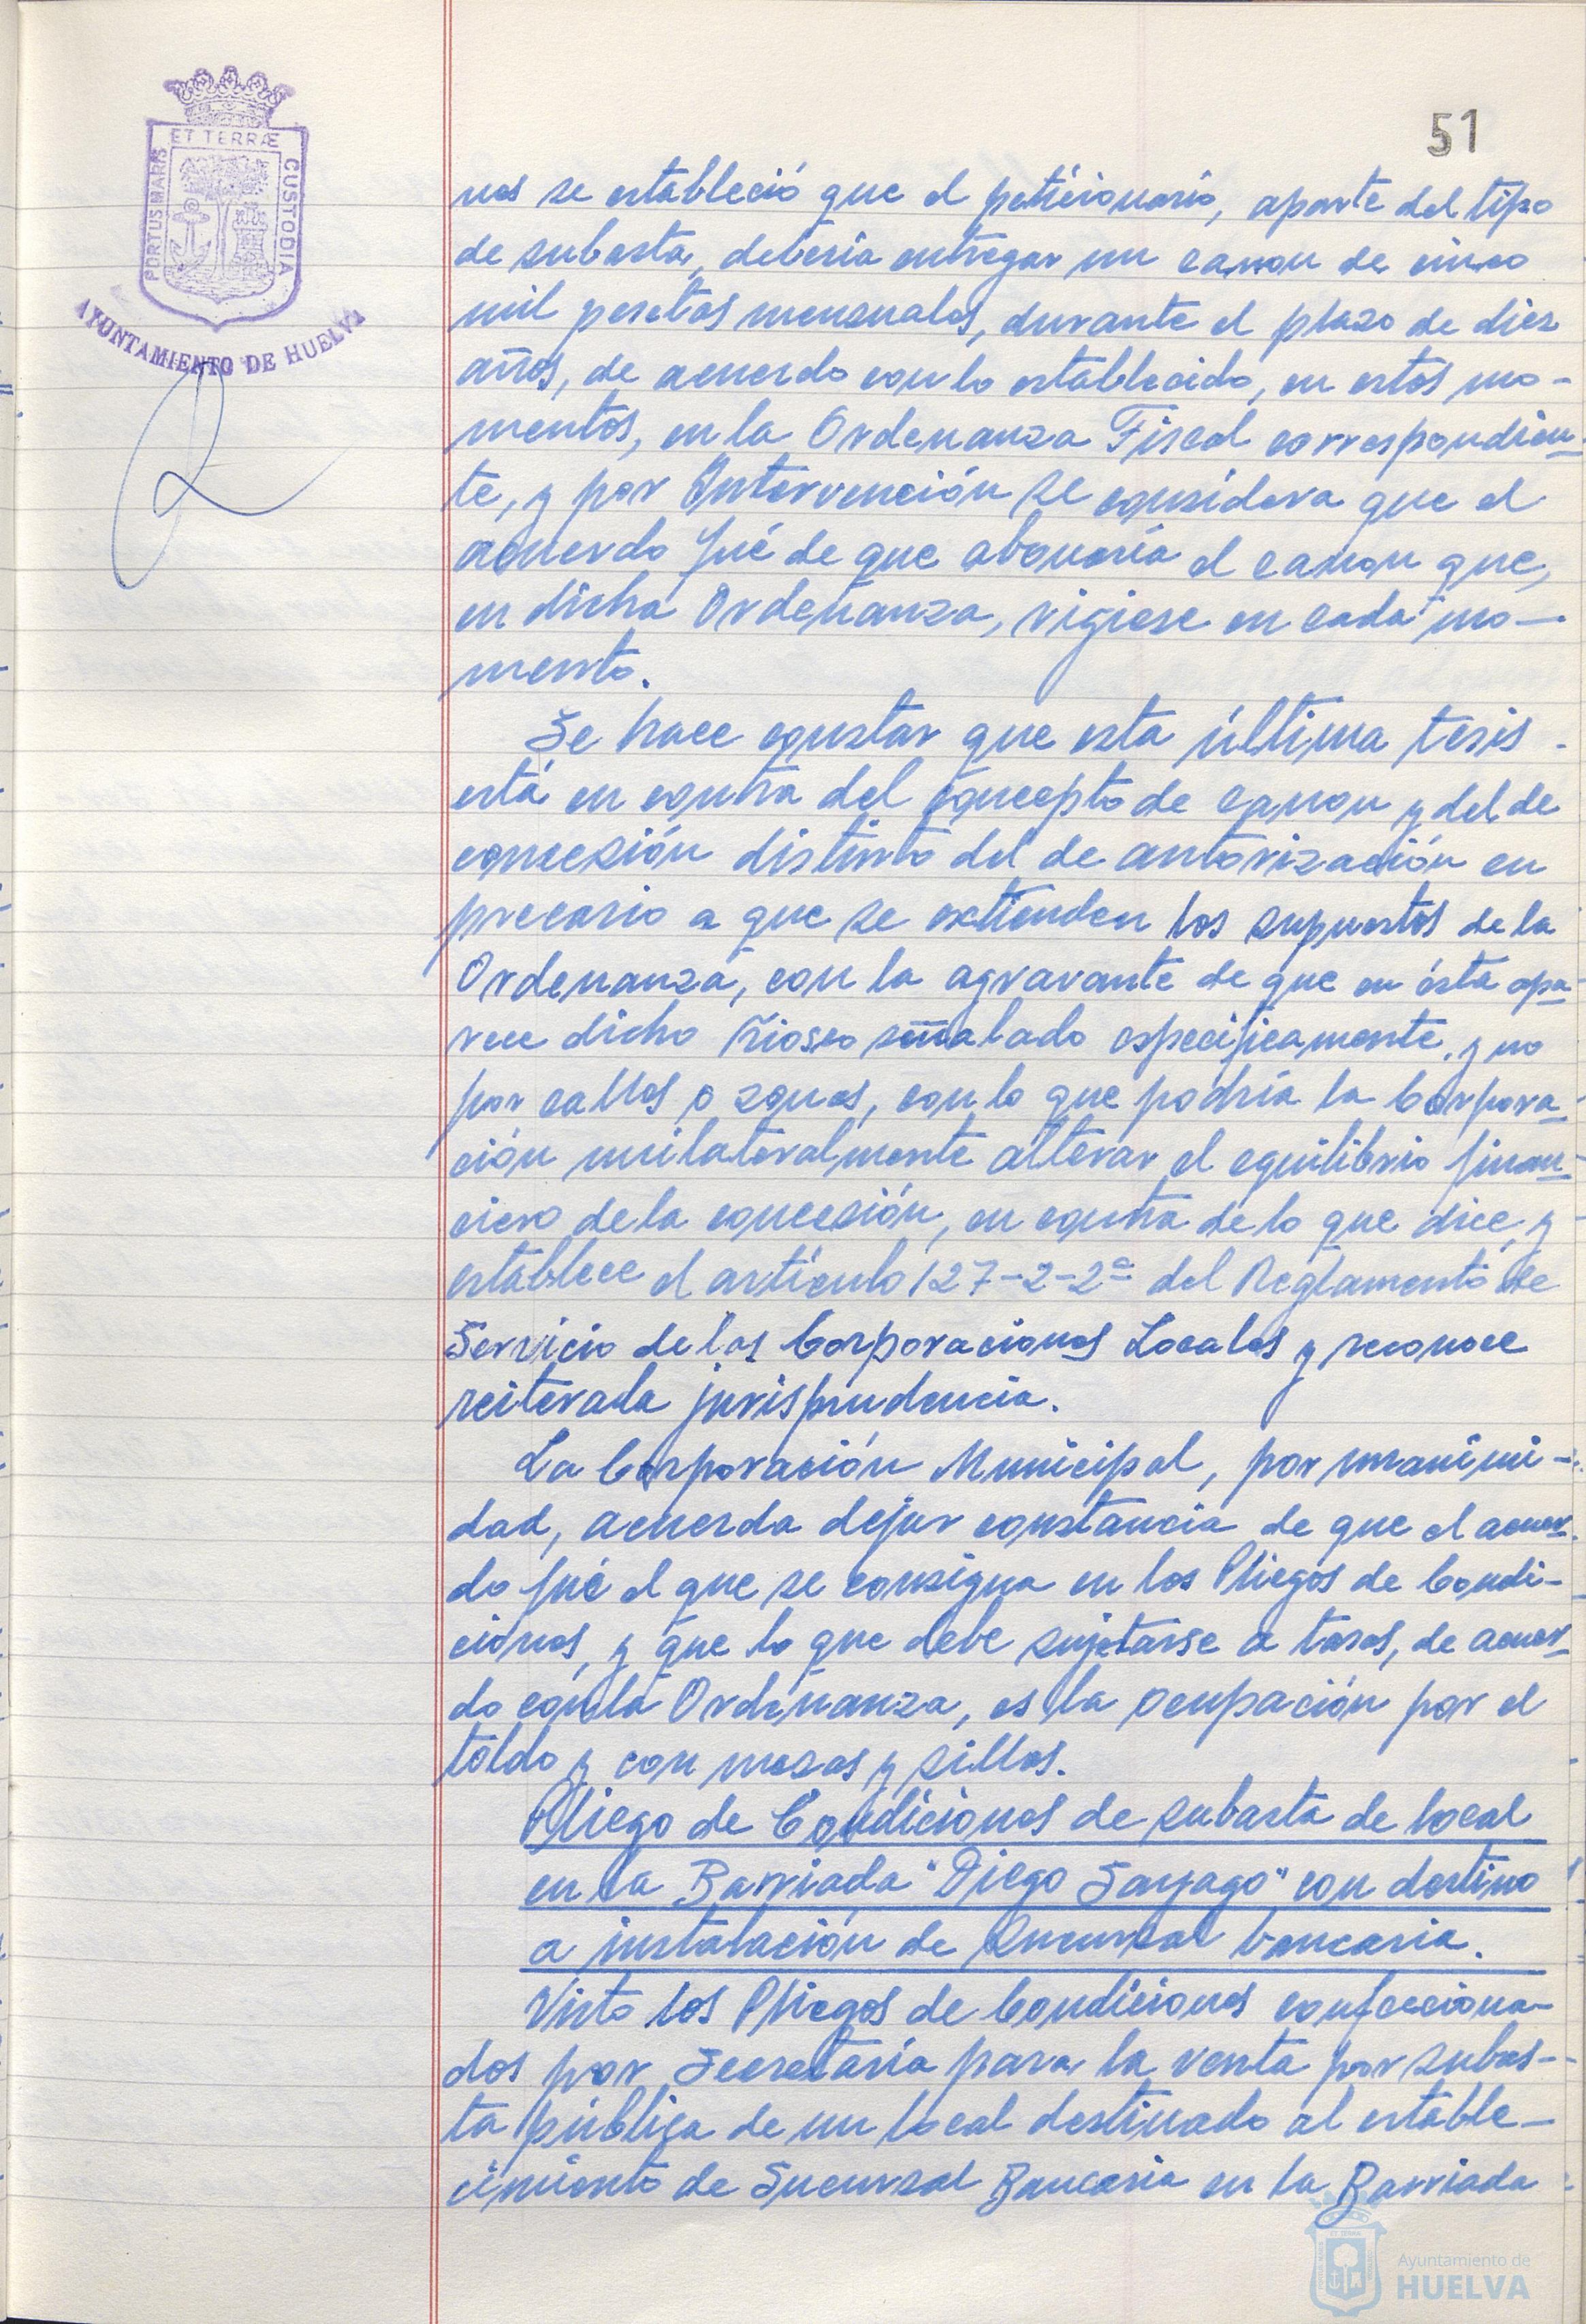 51
ET TERRÆ
PORTUS MARIS
CUSTODIA
AYUNTAMIENTO DE HUELVA
nes se estableció que el peticionario, aparte del tipo
de subasta, debería entregar un canon de cinco
mil pesetas mensuales, durante el plazo de diez
años, de acuerdo con lo establecido, en estos mo-
mentos, en la Ordenanza Fiscal correspondien-
te, y por Intervención se considera que el
acuerdo fué de que abonaría el canon que,
en dicha Ordenanza, rigiese en cada mo-
mento.
Se hace constar que esta última tesis
está en contra del concepto de canon y del de
concesión distinto del de autorización en
precario a que se extienden los supuestos de la
Ordenanza, con la agravante de que en ésta apa-
rece dicho Kiosco señalado especificamente, y no
por calles o zonas, con lo que podría la Corpora-
ción unilateralmente alterar el equilibrio finan-
ciero de la concesión, en contra de lo que dice, y
establece el artículo 127-2-2ª del Reglamento de
Servicio de las Corporaciones Locales y reconoce
reiterada jurisprudencia.
La Corporación Municipal, por unanimi-
dad, acuerda dejar constancia de que el acuer-
do fué el que se consigna en los Pliegos de Condi-
ciones, y que lo que debe sujetarse a tasas, de acuer-
do con la Ordenanza, es la ocupación por el
toldo y con mesas y sillas.
Pliego de Condiciones de subasta de local
en la Barriada "Diego Sayago" con destino
a instalación de Sucursal bancaria.
Visto los Pliegos de Condiciones confecciona-
dos por Secretaría para la venta por subas-
ta pública de un local destinado al estable-
cimiento de Sucursal Bancaria en la Barriada
Ayuntamiento de
HUELVA